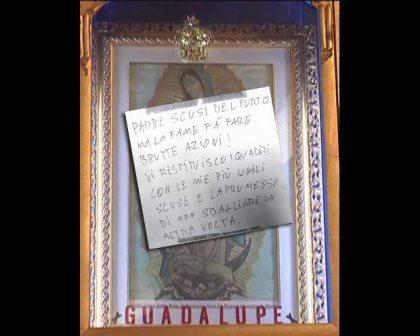 PADRE SCUSI DEL FURTO
MA LA FAME FÀ FARE
BRUTTE AZIONI!
VI RESTITUISCO I QUADRI
CON LE MIE PIÙ UMILI
SCUSE E LA PROMESSA
DI NON SBAGLIARE UN
ALTRA VOLTA.
GUADALUPE